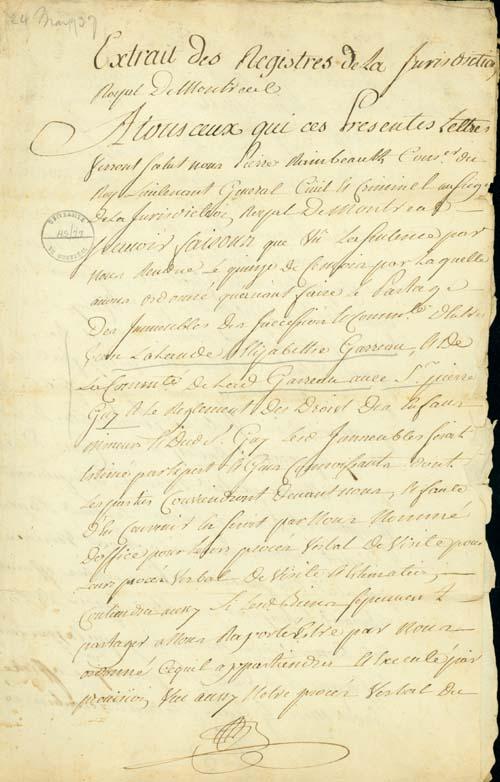 24 Mars 37
Extrait des Registres de La Jurisdiction
Royal De Montreal
A tous ceux qui ces Presentes Lettres
Verront salut nous Pierre Raimbeault Cons.er du
Roy Lieutenant General Civil et Criminel au siege
de La Jurisdiction Royal De Montreal
scavoir faisons que Vu La sentence par
nous Rendue Le quinze de ce mois par Laquelle
avons ordonné avant faire le Partage
Des Immeubles des successions et Comm.té
Jean Lalande Elizabethe Garreau, et De
La Comm.té de Lad Garreau avec S.r pierre
Guy et le Reglement Des Droits Des Enfans
mineurs et Dud S. Guy Lesd Immeubles seront
Estimé par Expert et Gens Connoissants dont
Les parties Conviendront Devant nous, et faute
d'en Convenir en seront par Nous Nommé
D'office pour Leurs procés Verbal De Visite pour
Leurs procés Verbal De Visite et Estimation,
partager a Nous Raporté Estre par Nous
ordonné Ce qu'il appartiendra et Executé par
provision, Vue aussy Notre procés Verbal Du